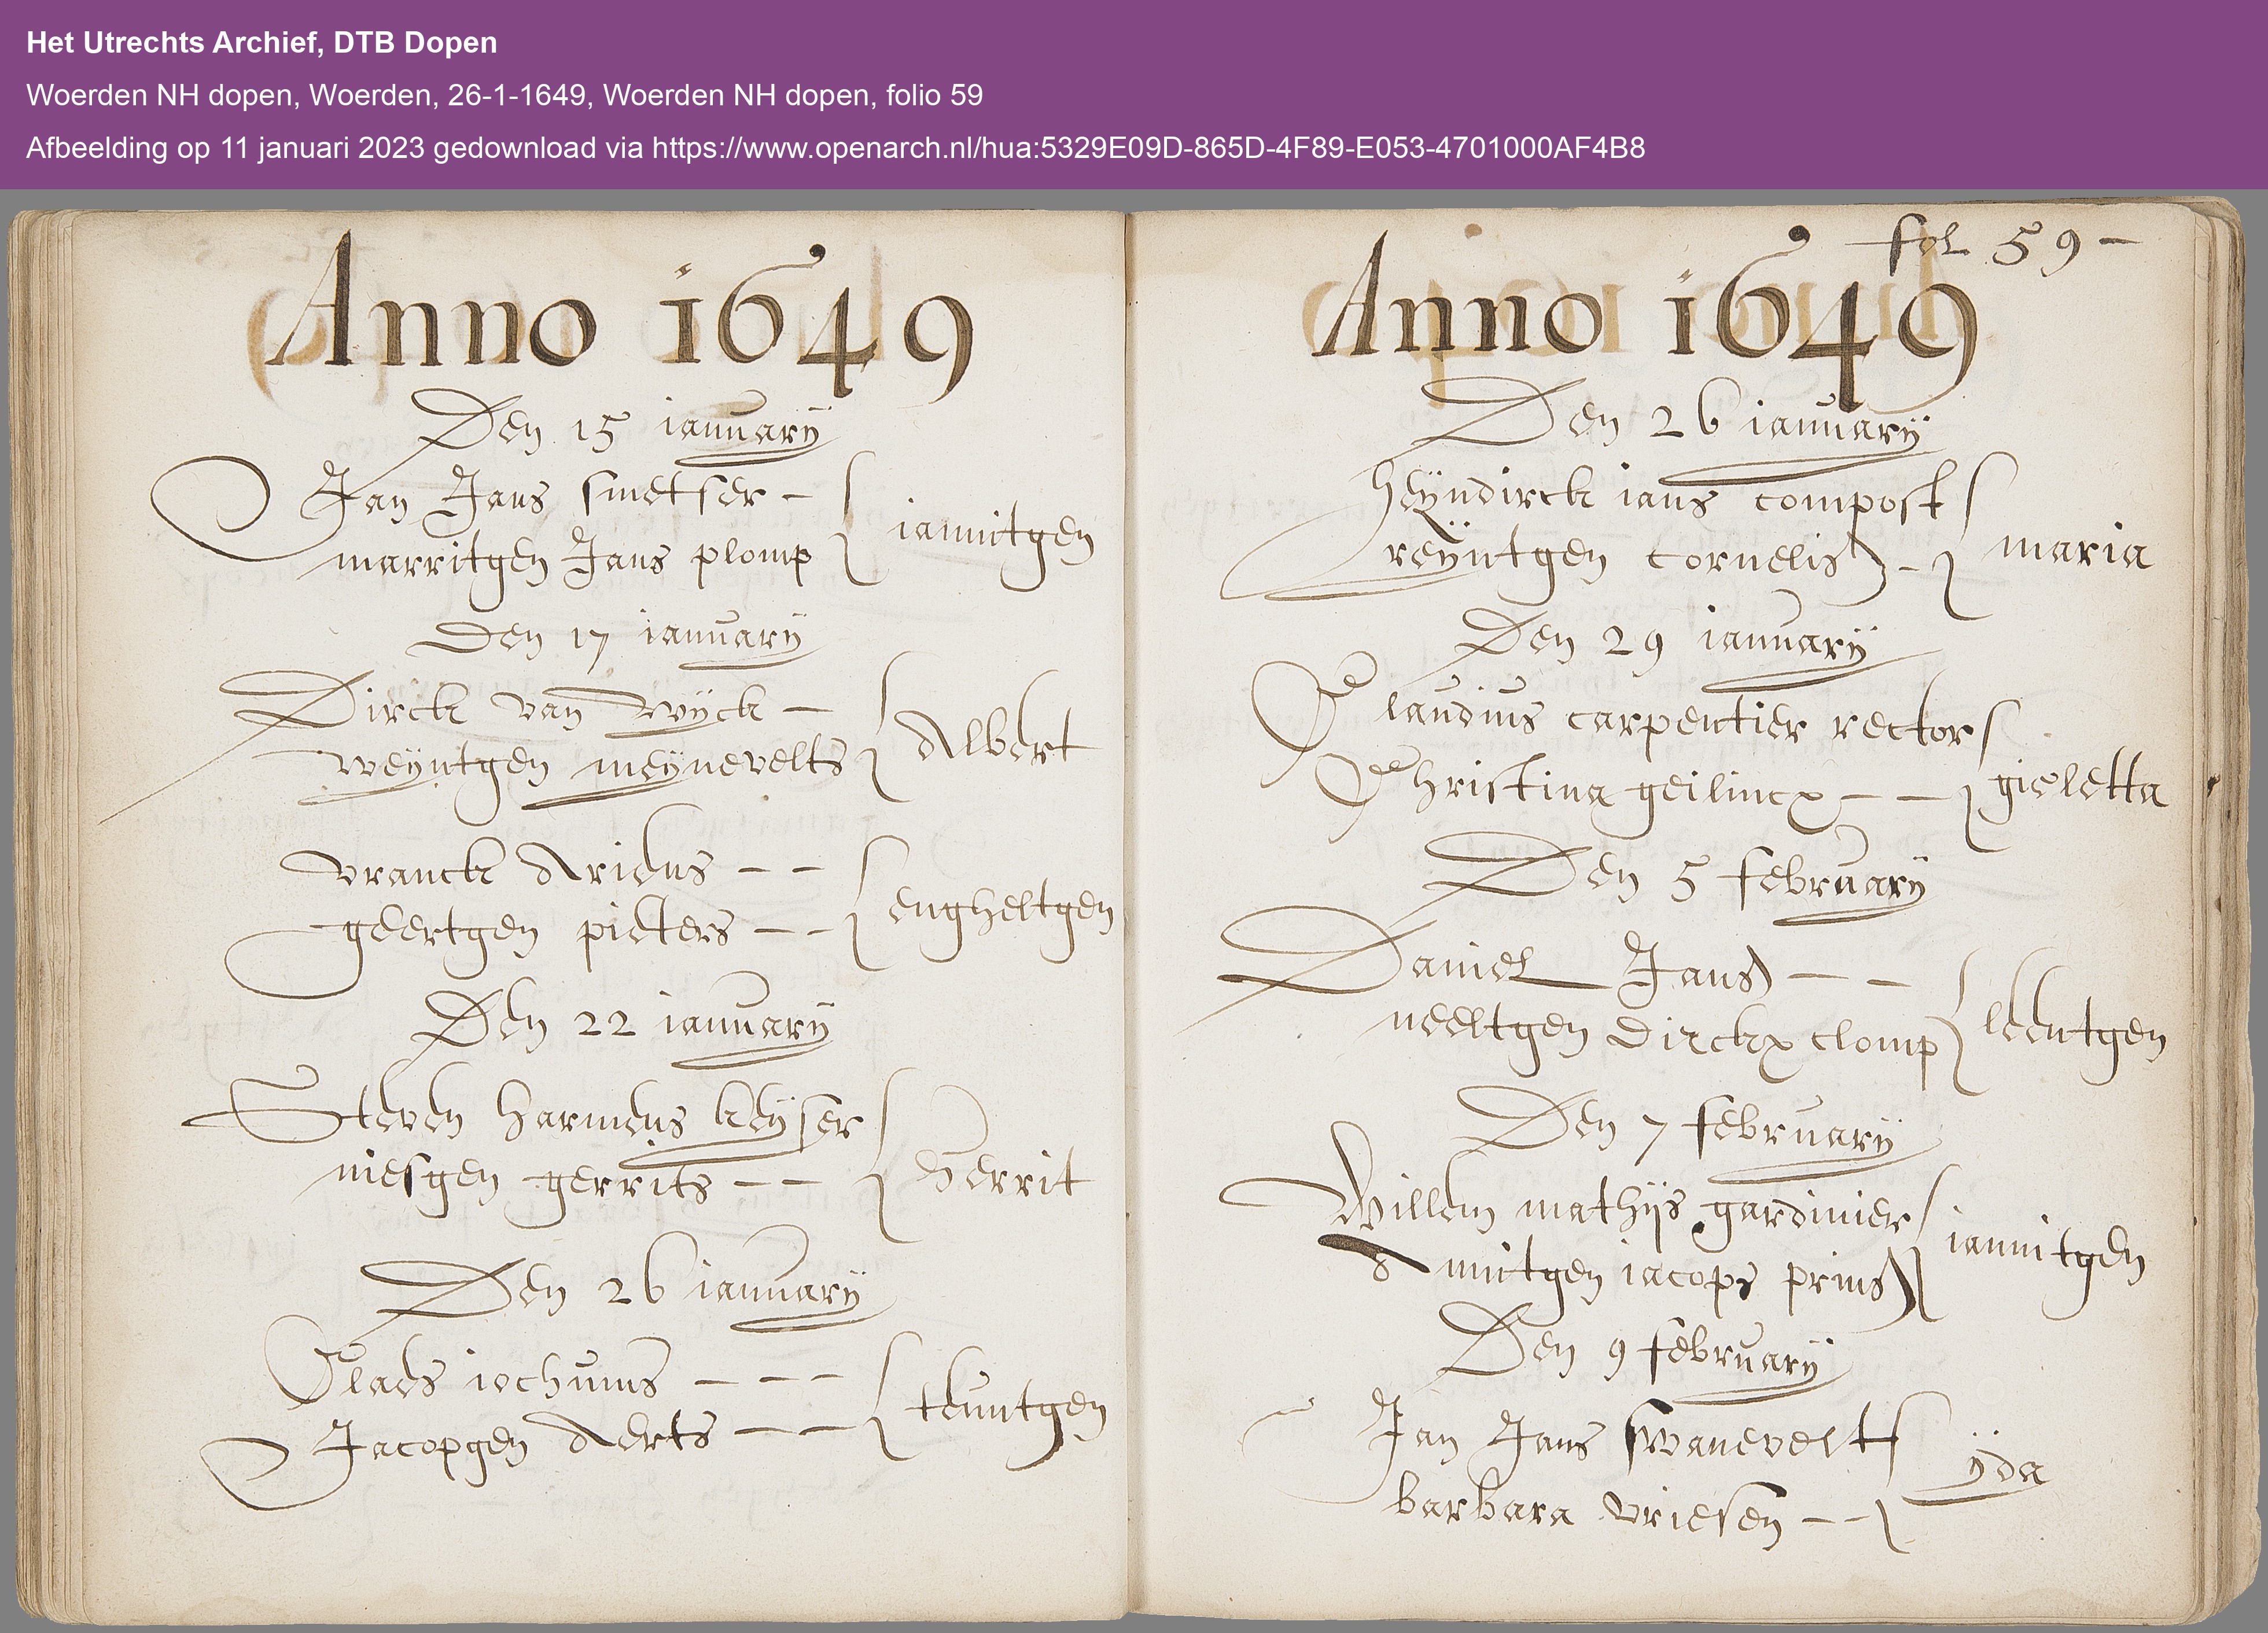 Het Utrechts Archief, DTB Dopen
Woerden NH dopen, Woerden, 26-1-1649, Woerden NH dopen, folio 59
Afbeelding op 11 januari 2023 gedownload via https://www.openarch.nl/hua:5329E09D-865D-4F89-E053-4701000AF4B8
Anno 1649
Den 15 ianuarÿ
Jan Jans smetser -
marritgen Jans plomp
iannitgen
Den 17 ianuarÿ
Dirck van wÿck -
weÿntgen meÿnevelts
Albert
vranck Ariens - -
geertgen pieters - -
engheltgen
Den 22 ianuarÿ
Steven harmens keÿser
niesgen gerrits - -
Gerrit
Den 26 ianuarÿ
Claes iochums - - -
Jacopgen Aerts - -
teuntgen
fol 59 -
Anno 1649
Den 26 ianuarÿ
heÿndirck ians compost
reÿntgen cornelis -
maria
Den 29 ianuarÿ
Claudius carpentier rector
Christina geilincx - -
gieletta
Den 5 februarÿ
Daniel Jans - -
neeltgen Dirckx clomp
leentgen
Den 7 februarÿ
Willem mathÿs gardinier
Annitgen iacops prins
iannitgen
Den 9 februarÿ
Jan Jans swanevelt
barbara vriesen - -
ÿda